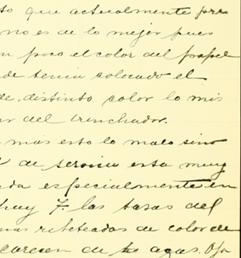 to que actualmente pre
no es de lo mejor pues
un poco el color del papel
de tenia colocado el
de distinto color lo mis
ar del trinchador.
mas esto lo malo sino
de servicio esta muy
da especialmente en
hay 7. las tasas del
mas reteteadas de color de
carecen de las agas. Oja